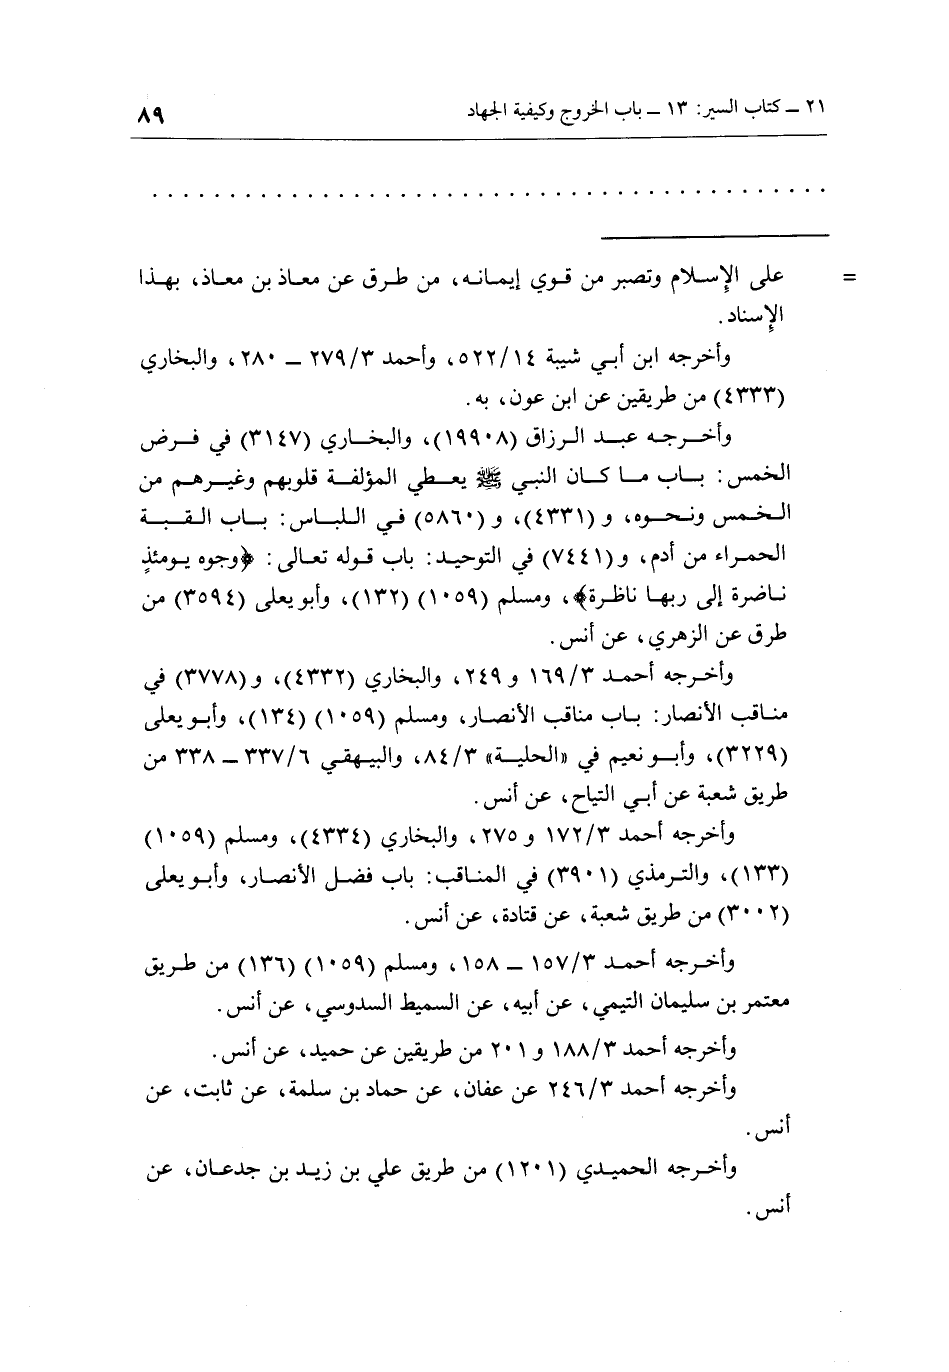 ٢١ ـ كتاب السير: ١٣ ـ باب الخروج وكيفية الجهاد ٨٩
. . . . . . . . . . . . . . . . . . . . . . . . . . . . . . . . . . . . . . . . . . . .
= على الإسلام وتصبر من قوي إيمانه، من طرق عن معاذ بن معاذ، بهذا
الإسناد.
وأخرجه ابن أبي شيبة ٥٢٢/١٤، وأحمد ٢٧٩/٣ ـ ٢٨٠، والبخاري
(٤٣٣٣) من طريقين عن ابن عون، به.
وأخرجه عبد الرزاق (١٩٩٠٨)، والبخاري (٣١٤٧) في فرض
الخمس: باب ما كان النبي ﷺ يعطي المؤلفة قلوبهم وغيرهم من
الخمس ونحوه، و (٤٣٣١)، و (٥٨٦٠) في اللباس: باب القبة
الحمراء من أدم، و(٧٤٤١) في التوحيد: باب قوله تعالى: ﴿وجوه يومئذٍ
ناضرة إلى ربها ناظرة﴾، ومسلم (١٠٥٩) (١٣٢)، وأبو يعلى (٣٥٩٤) من
طرق عن الزهري، عن أنس.
وأخرجه أحمد ١٦٩/٣ و ٢٤٩، والبخاري (٤٣٣٢)، و(٣٧٧٨) في
مناقب الأنصار: باب مناقب الأنصار، ومسلم (١٠٥٩) (١٣٤)، وأبو يعلى
(٣٢٢٩)، وأبو نعيم في «الحلية» ٨٤/٣، والبيهقي ٣٣٧/٦ ـ ٣٣٨ من
طريق شعبة عن أبي التياح، عن أنس.
وأخرجه أحمد ١٧٢/٣ و ٢٧٥، والبخاري (٤٣٣٤)، ومسلم (١٠٥٩)
(١٣٣)، والترمذي (٣٩٠١) في المناقب: باب فضل الأنصار، وأبو يعلى
(٣٠٠٢) من طريق شعبة، عن قتادة، عن أنس.
وأخرجه أحمد ١٥٧/٣ ـ ١٥٨، ومسلم (١٠٥٩) (١٣٦) من طريق
معتمر بن سليمان التيمي، عن أبيه، عن السميط السدوسي، عن أنس.
وأخرجه أحمد ١٨٨/٣ و ٢٠١ من طريقين عن حميد، عن أنس.
وأخرجه أحمد ٢٤٦/٣ عن عفان، عن حماد بن سلمة، عن ثابت، عن
أنس.
وأخرجه الحميدي (١٢٠١) من طريق علي بن زيد بن جدعان، عن
أنس.